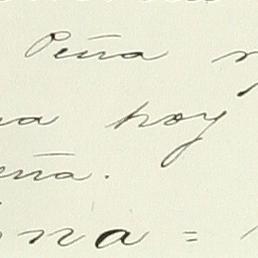 Peña y
na hoy
eña.
ina =